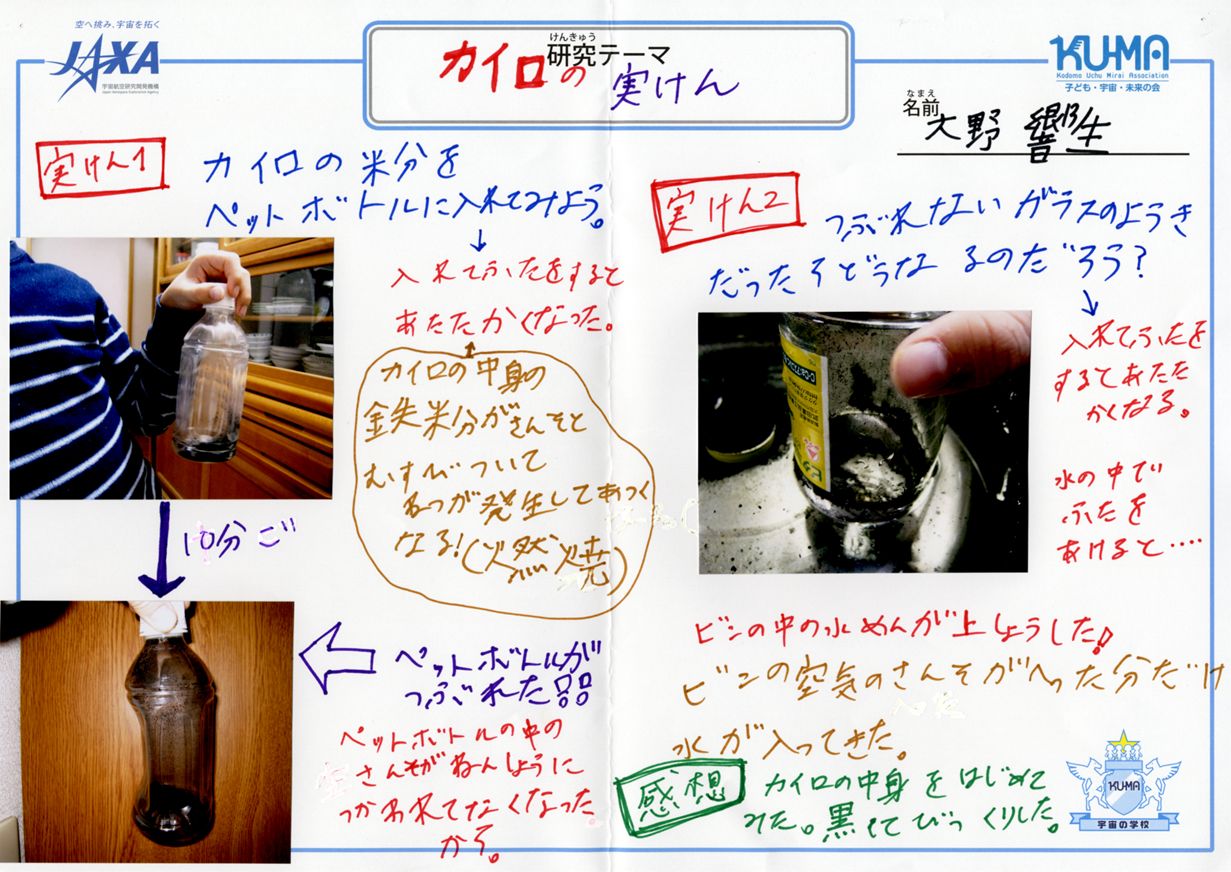 空へ挑み、宇宙を拓く
JAXA
宇宙航空研究開発機構
Japan Aerospace Exploration Agency
けんきゅう
研究テーマ
カイロの実けん
KU-MA
Kodomo Uchu Mirai Association
子ども・宇宙・未来の会
なまえ
名前
大野 響生
実けん1
カイロの粉を
ペットボトルに入れてみよう。
↓
入れてふたをすると
あたたかくなった。
カイロの中身の
鉄粉がさんそと
むすびついて
ねつが発生してあつく
なる!(燃焼)
10分ご
ペットボトルが
つぶれた!!
ペットボトルの中の
さんそがねんしょうに
つかわれてなくなった
から。
実けん2
つぶれないガラスのようき
だったらどうなるのだろう?
↓
入れてふたを
するとあたた
かくなる。
水の中で
ふたを
あけると‥‥
ビンの中の水めんが上しょうした!
ビンの空気のさんそがへった分だけ
水が入ってきた。
感想
カイロの中身をはじめて
みた。黒くてびっくりした。
KU-MA
宇宙の学校